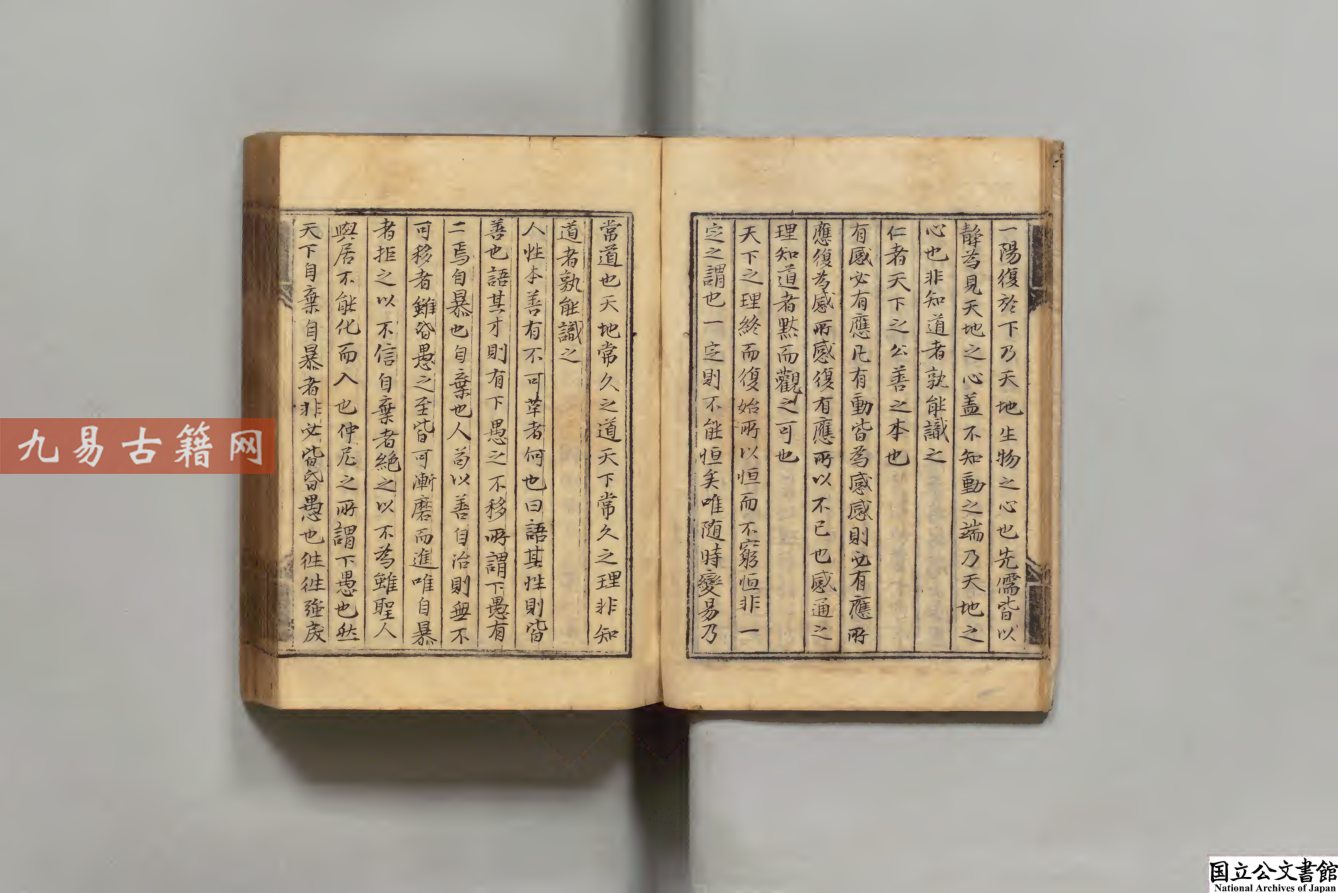 一陽復於下乃天地生物之心也先儒皆以
靜為見天地之心盖不知動之端乃天地之
心也非知道者孰能識之
仁者天下之公善之本也
有感必有應凡有動皆為感感則必有應所
應復為感所感復有應所以不已也感通之
理知道者默而觀之可也
天下之理終而復始所以恒而不窮恒非一
定之謂也一定則不能恒矣唯随時變易乃
常道也天地常久之道天下常久之理非知
道者孰能識之
人性本善有不可革者何也曰語其性則皆
善也語其才則有下愚之不移所謂下愚有
二焉自暴也自棄也人苟以善自治則無不
可移者雖昏愚之至皆可漸磨而進唯自暴
者拒之以不信自棄者絶之以不為雖聖人
與居不能化而入也仲尼之所謂下愚也然
天下自棄自暴者非必皆昏愚也徃徃强戾
九易古籍网
国立公文書館
National Archives of Japan